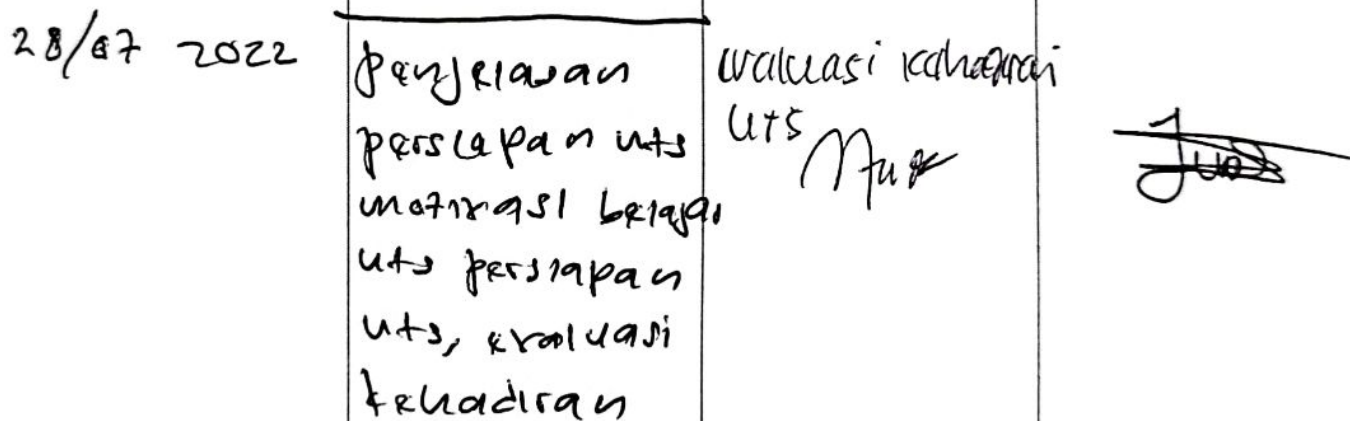 28/07 2022
penjelasan
persiapan uts
motivasi belajar
uts persiapan
uts, evaluasi
kehadiran
evaluasi
uts